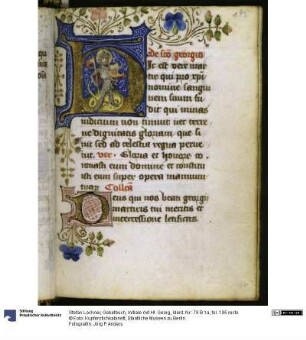 de sco georgio
Hic est vere mar
tir qui pro xpi
nomine sangui
nem suum fu
dit qui minas
iudicium non timuit nec terre
ne dignitatis gloriam que si
uit sed ad celestia regna perue
nit. Gloria et honore co
ronasti eum domine et constitu
isti eum super opera manuum
tuarum Collecta
Deus qui nos beati georgii
martiris tui meritis et
intercessione letificas
Stiftung
Preußischer Kulturbesitz
Stefan Lochner, Gebetbuch, Initiale mit Hl. Georg, Ident.Nr. 78 B 1a, fol. 185 recto
© Foto: Kupferstichkabinett, Staatliche Museen zu Berlin
Fotograf/in: Jörg P. Anders